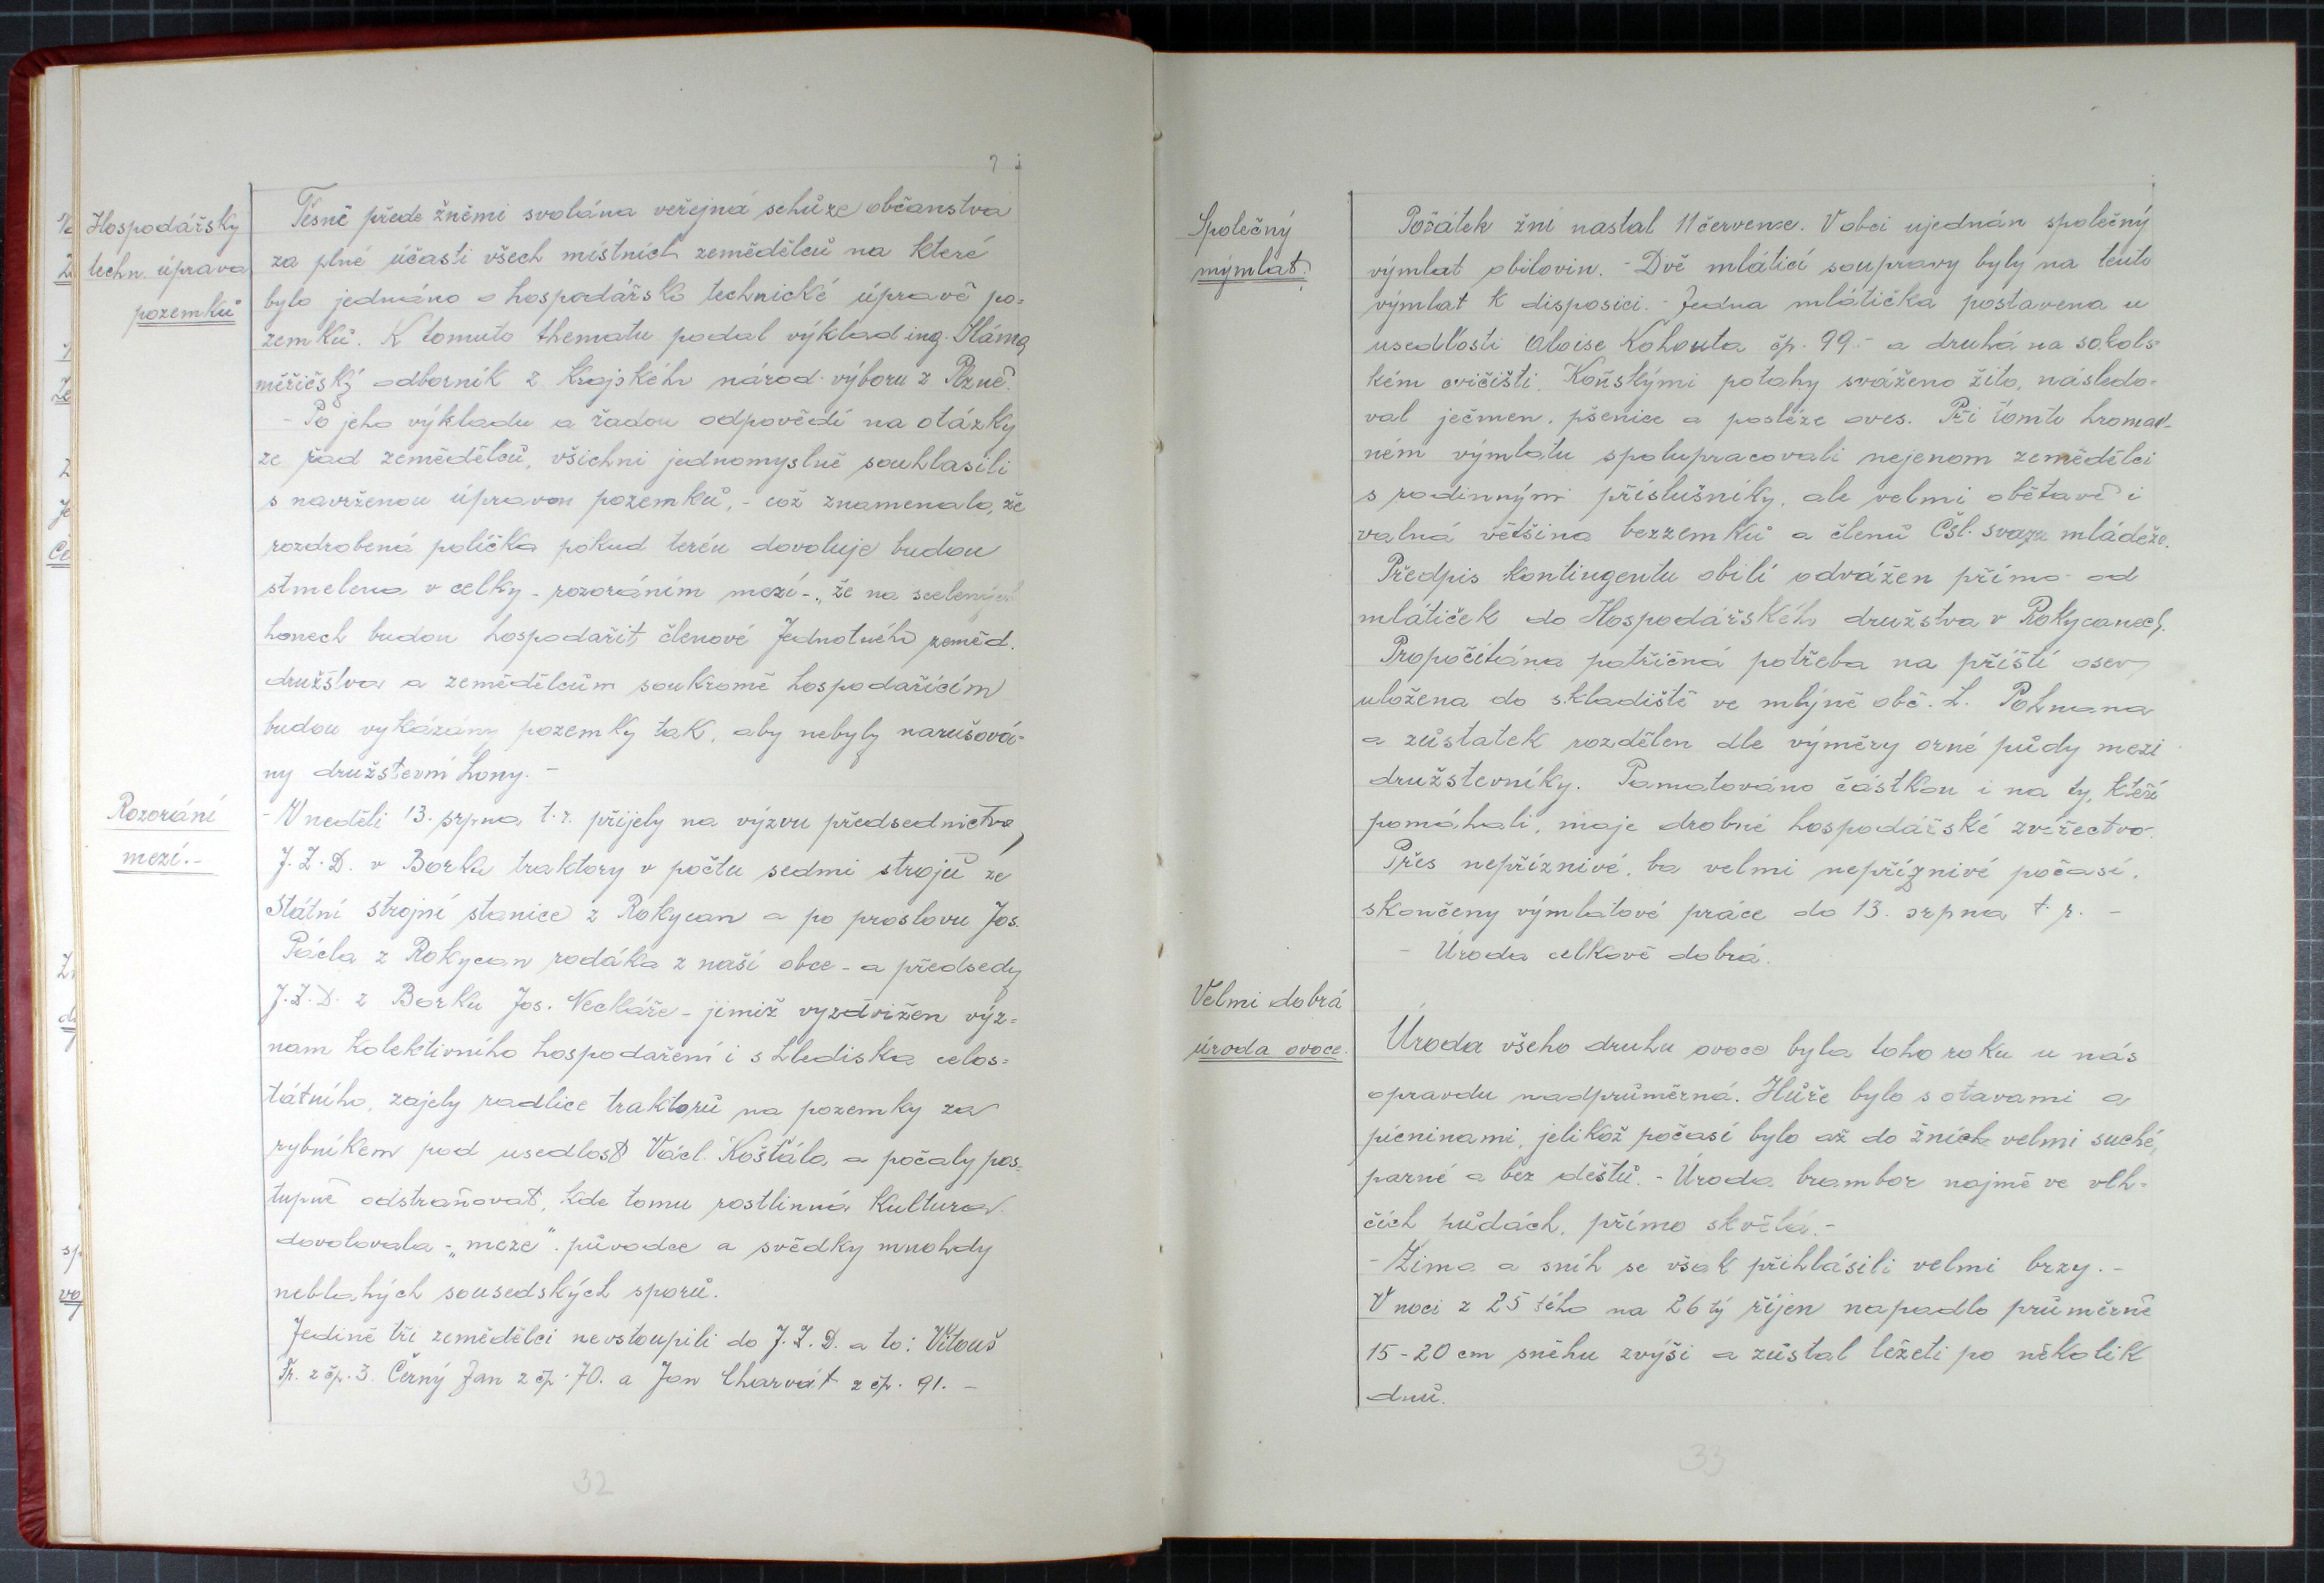 Hospodářsky
techn. úprava
pozemků
Těsně přede žněmi svolána veřejná schůze občanstva
za plné účasti všech místních zemědělců na které
bylo jednáno o hospodářsko technické úpravě po=
zemků. K tomuto thematu podal výklad ing. Sláma
měřičský odborník z Krajského národ. výboru z Plzně.
- Po jeho výkladu a řadou odpovědí na otázky
ze řad zemědělců, všichni jednomyslně souhlasili
s navrženou úpravou pozemků, - což znamenalo, že
rozdrobená políčka pokud terén dovoluje budou
stmelena v celky - rozoráním mezí -, že na scelených
honech budou hospodařit členové Jednotného zeměd.
družstva a zemědělcům soukromě hospodařícím
budou vykázány pozemky tak, aby nebyly narušová=
ny družstevní hony. -
Rozorání
mezí. -
- V neděli 13. srpna t. r. přijely na výzvu předsednictva
J. Z. D. v Borku traktory v počtu sedmi strojů ze
Státní strojní stanice z Rokycan a po proslovu Jos.
Pácla z Rokycan rodáka z naší obce - a předsedy
J. Z. D. z Borku Jos. Neckáře - jimiž vyzdvižen výz=
nam kolektivního hospodaření i s hlediska celos=
tátního, zajely radlice traktorů na pozemky za
rybníkem pod usedlostí Václ. Košťála, a počaly pos=
tupně odstraňovat, kde tomu rostlinná kultura
dovolovala - "meze". původce a svědky mnohdy
neblahých sousedských sporů.
Jedině tři zemědělci nevstoupili do J. Z. D. a to: Vítouš
Fr. z čp. 3. Černý Jan z čp. 70. a Jan Charvát z čp. 91. -
32
Společný
výmlat.
Počátek žní nastal 11 července. V obci ujednán společný
výmlat obilovin. - Dvě mlátící soupravy byly na tento
výmlat k disposici. - Jedna mlátička postavena u
usedlosti Aloise Kohouta čp. 99. - a druhá na sokols=
kém cvičišti. Koňskými potahy sváženo žito, následo=
val ječmen, pšenice a posléze oves. Při tomto hromad-
ném výmlatu spolupracovali nejenom zemědělci
s rodinnými příslušníky, ale velmi obětavě i
valná většina bezzemků a členů Čsl. svazu mládeže.
Předpis kontingentu obilí odvážen přímo od
mlátiček do Hospodářského družstva v Rokycanech.
Propočítána patřičná potřeba na příští osev
uložena do skladiště ve mlýně obč. L. Pohmana
a zůstatek rozdělen dle výměry orné půdy mezi
družstevníky. Pamatováno částkou i na ty, kteří
pomáhali, maje drobné hospodářské zvířectvo.
Přes nepříznivé, ba velmi nepříznivé počasí,
skončeny výmlatové práce do 13. srpna t. r. -
- Úroda celkově dobrá.
Velmi dobrá
úroda ovoce.
Úroda všeho druhu ovoce byla toho roku u nás
opravdu nadprůměrná. Hůře bylo s otavami a
pícninami, jelikož počasí bylo až do žních velmi suché,
parné a bez deštů. - Úroda brambor najmě ve vlh=
čích půdách, přímo skvělá. -
- Zima a sníh se však přihlásili velmi brzy. -
V noci z 25 tého na 26 tý říjen napadlo průměrně
15-20 cm sněhu zvýši a zůstal ležeti po několik
dnů.
33